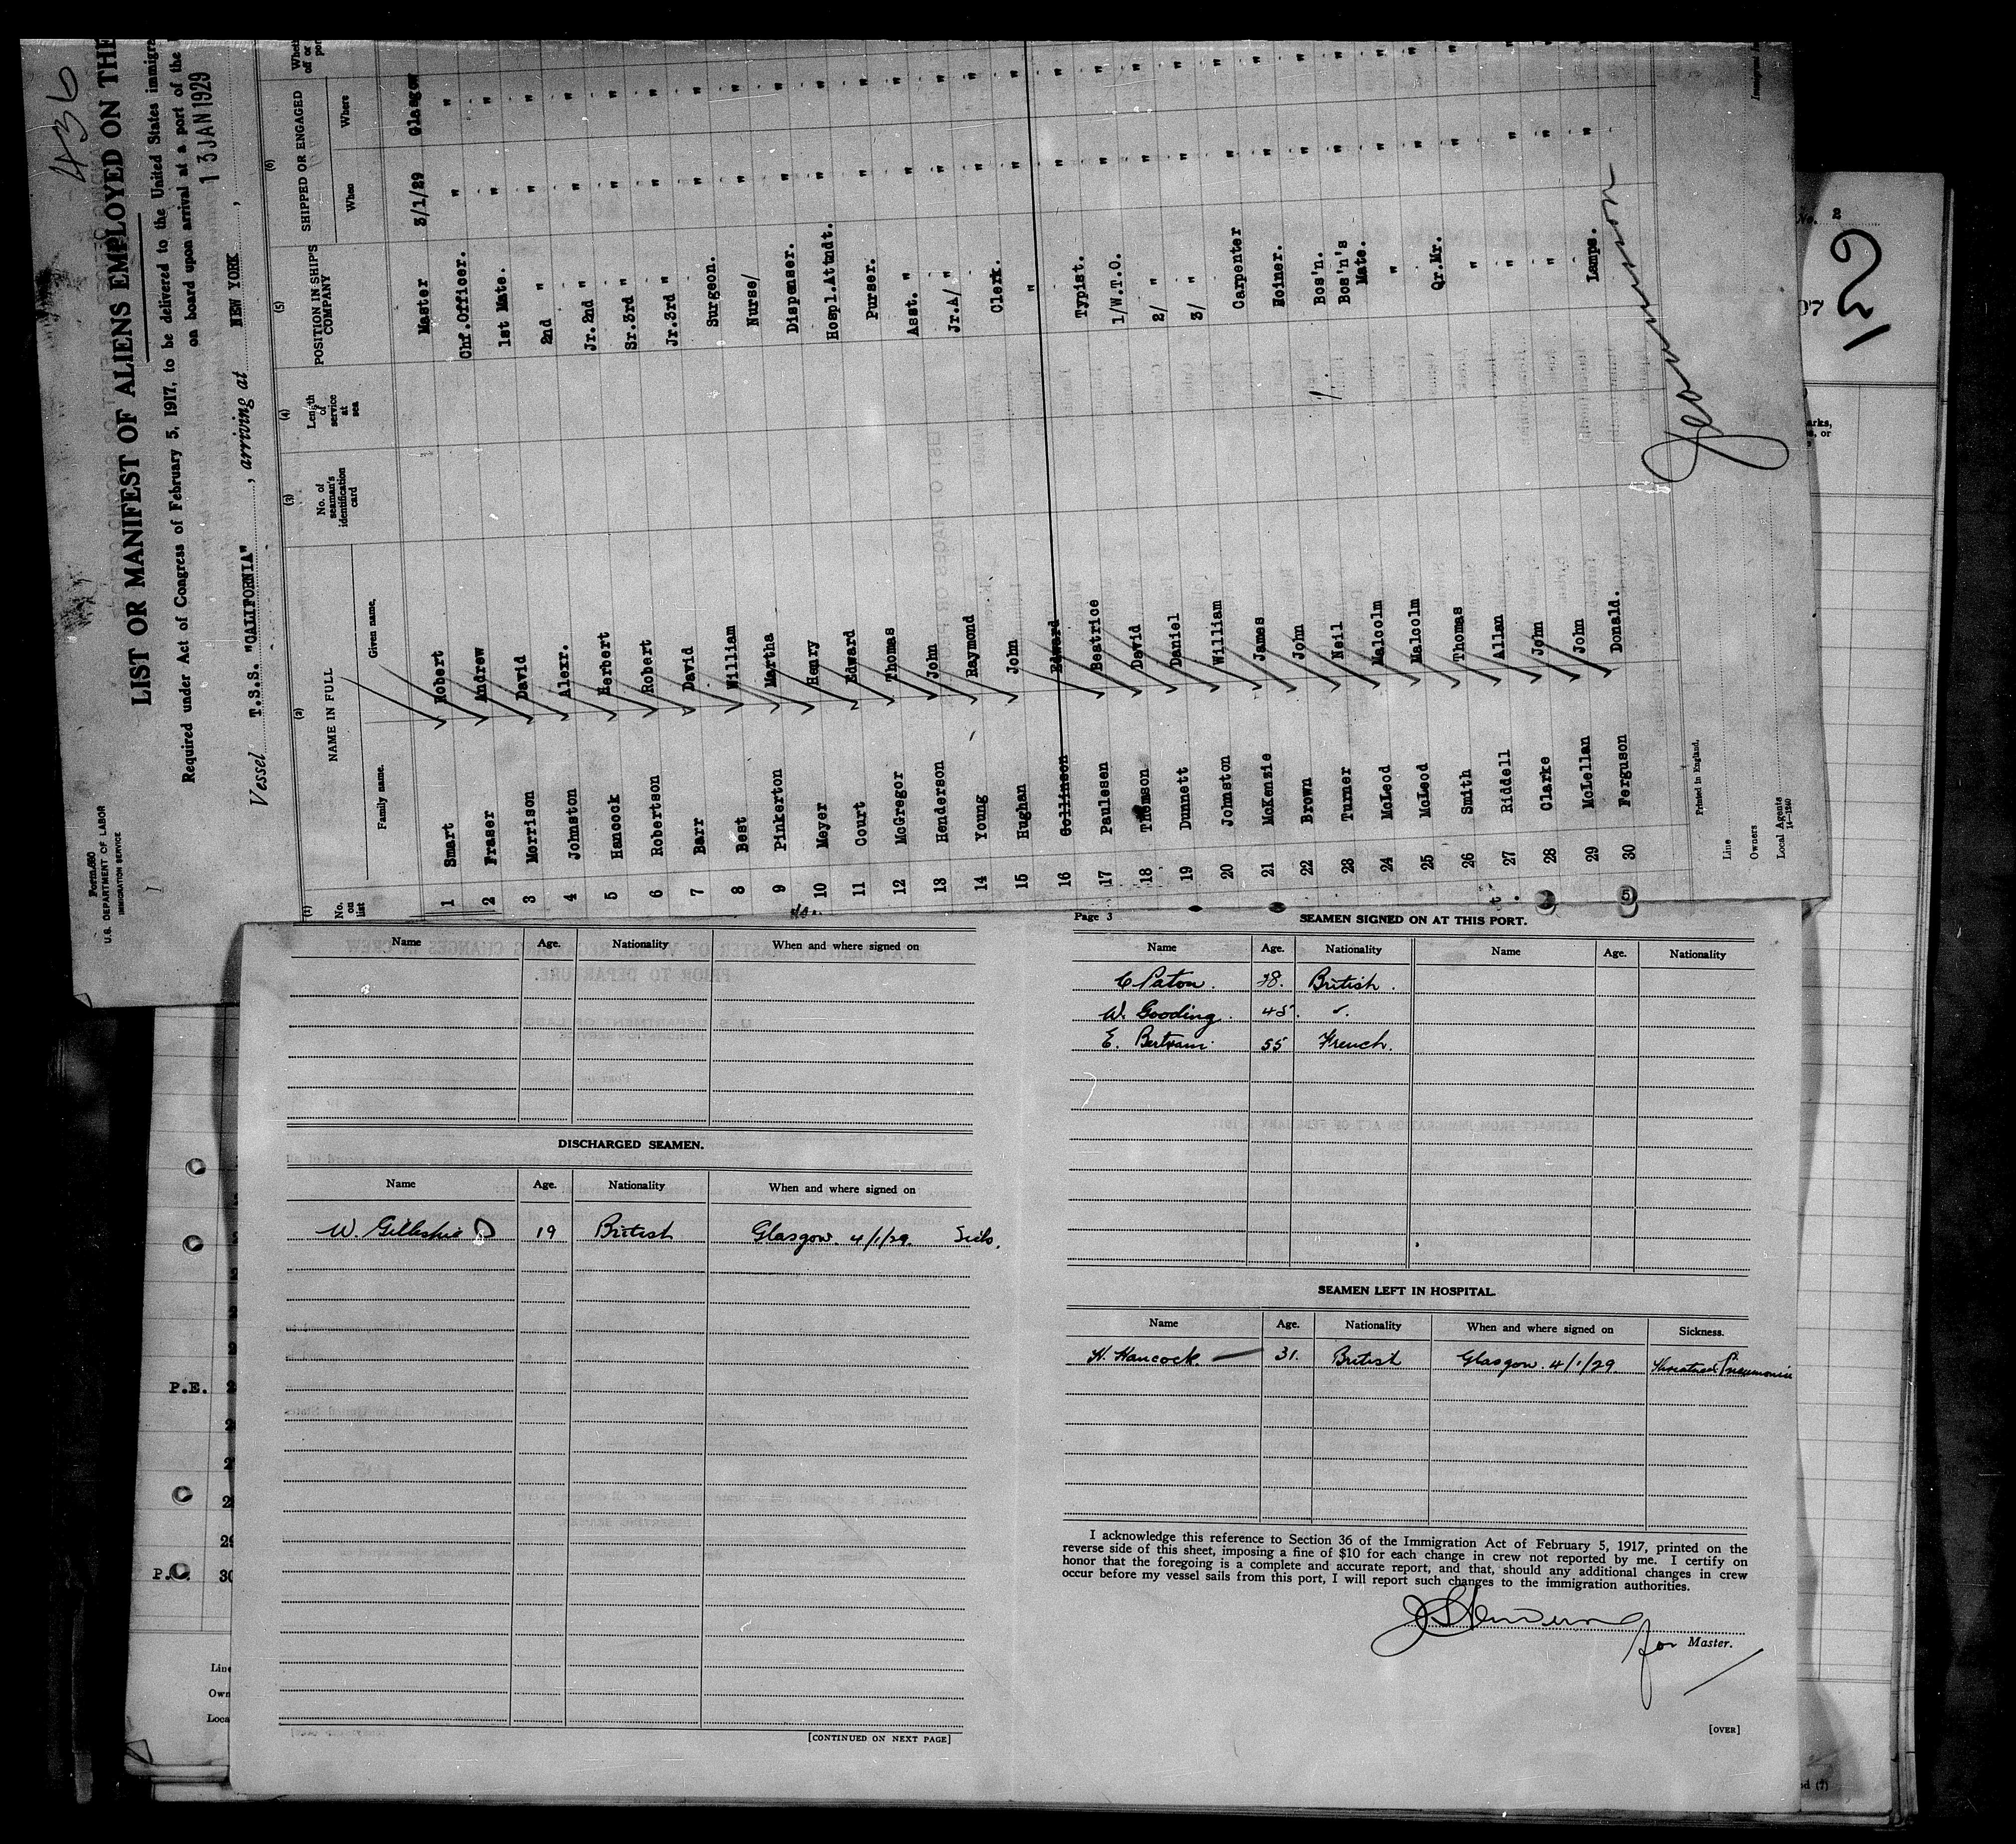 436
Form 680
U.S. DEPARTMENT OF LABOR
IMMIGRATION SERVICE
LIST OR MANIFEST OF ALIENS EMPLOYED ON THE
Required under Act of Congress of February 5, 1917, to be delivered to the United States immigra
on board upon arrival at a port of the
13 JAN 1929
Vessel T.S.S. "CALIFORNIA", arriving at NEW YORK,
(1) (2) (3) (4) (5) (6)
No. on list NAME IN FULL No. of seaman's identification card Length of service at sea POSITION IN SHIP'S COMPANY SHIPPED OR ENGAGED
Family name. Given name. When Where
1 Smart Robert Master 3/1/29 Glasgow
2 Fraser Andrew Chf.Officer. " "
3 Morrison David 1st Mate. " "
4 Johnston Alexr. 2nd " " "
5 Hancock Herbert Jr.2nd " " "
6 Robertson Robert Sr.3rd " " "
7 Barr David Jr.3rd " " "
8 Best William Surgeon. " "
9 Pinkerton Martha Nurse/ " "
10 Meyer Henry Dispenser. " "
11 Court Edward Hospl.Attndt. " "
12 McGregor Thomas Purser. " "
13 Henderson John Asst. " " "
14 Young Raymond Jr.A/ " " "
15 Hughan John Clerk. " "
16 Collinson Edward " " "
17 Paulesen Beatrice Typist. " "
18 Thomson David 1/W.T.O. " "
19 Dunnett Daniel 2/ " " "
20 Johnston William 3/ " " "
21 McKenzie James Carpenter " "
22 Brown John Joiner. " "
23 Turner Neil Bos'n. " "
24 McLeod Malcolm Bos'n's Mate. " "
25 McLeod Malcolm " " "
26 Smith Thomas Qr.Mr. " "
27 Riddell Allan " " "
28 Clarke John " " "
29 McLellan John " " "
30 Ferguson Donald. Lamps. "
Printed in England.
Line
Owners
Local Agents
14—1240
Immigrant In
No. 2
Name Age. Nationality When and where signed on
DISCHARGED SEAMEN.
Name Age. Nationality When and where signed on
W. Gillespie 19 British Glasgow. 4/1/29.
[CONTINUED ON NEXT PAGE]
Page 3
SEAMEN SIGNED ON AT THIS PORT.
Name Age. Nationality Name Age. Nationality
C Paton. 38. British.
W. Gooding. 45. ".
E. Bertrami 55 French.
SEAMEN LEFT IN HOSPITAL.
Name Age. Nationality When and where signed on Sickness.
H. Hancock 31. British Glasgow. 4/1/29. Threatened Pneumonia
I acknowledge this reference to Section 36 of the Immigration Act of February 5, 1917, printed on the
reverse side of this sheet, imposing a fine of $10 for each change in crew not reported by me. I certify on
honor that the foregoing is a complete and accurate report, and that, should any additional changes in crew
occur before my vessel sails from this port, I will report such changes to the immigration authorities.
for Master.
[OVER]
P.E.
29
30
Line
Own
Loca